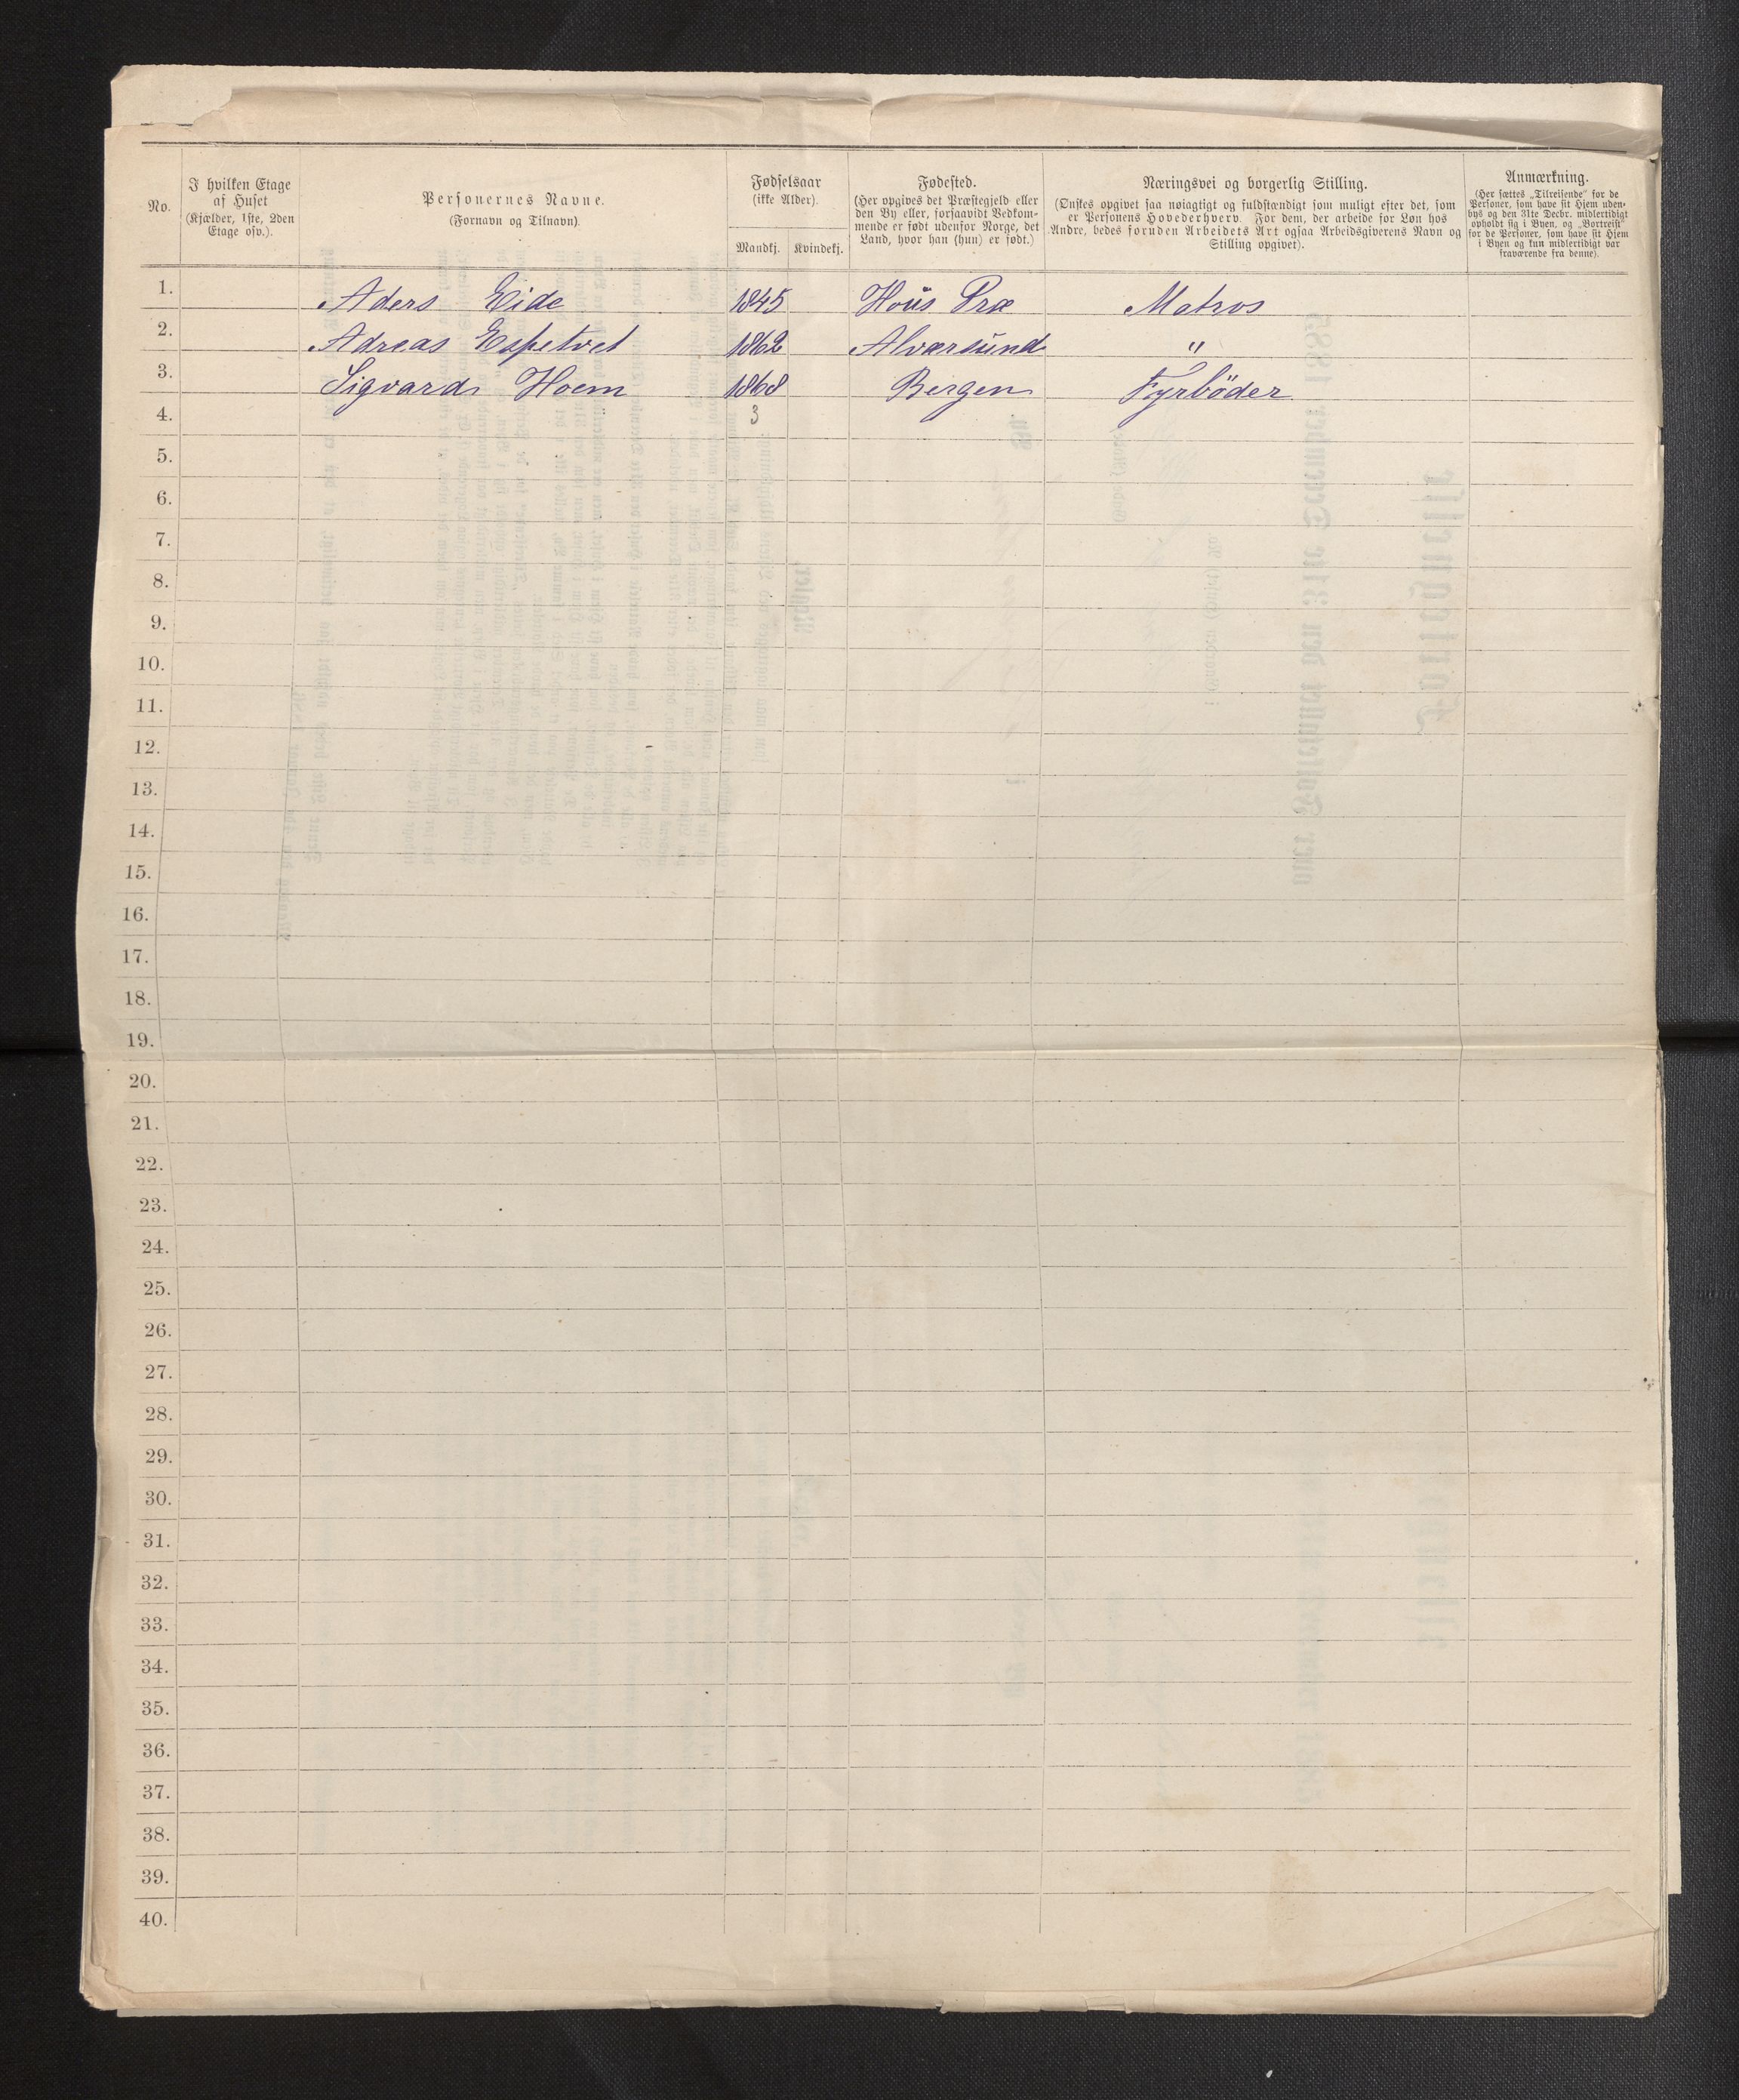 No.
I hvilken Etage
af Huset
(Kjælder, 1ste, 2den
Etage osv.).
Personernes Navne.
(Fornavn og Tilnavn).
Fødselsaar
(ikke Alder).
Mandkj. Kvindekj.
Fødested.
(Her opgives det Præstegjeld eller
den By eller, forsaavidt Vedkom-
mende er født udenfor Norge, det
Land, hvor han (hun) er født.)
Næringsvei og borgerlig Stilling.
(Ønskes opgivet saa nøiagtigt og fuldstændigt som muligt efter det, som
er Personens Hovederhverv. For dem, der arbeide for Løn hos
Andre, bedes foruden Arbeidets Art ogsaa Arbeidsgiverens Navn og
Stilling opgivet).
Anmærkning.
(Her sættes „Tilreisende" for de
Personer, som have sit Hjem uden-
bys og den 31te Decbr. midlertidigt
opholdt sig i Byen, og „Bortreist"
for de Personer, som have sit Hjem
i Byen og kun midlertidigt var
fraværende fra denne).
1. Aders Eide 1845 Hous Præ Matros
2. Adreas Espetvet 1862 Alværsund "
3. Sigvard Hoem 1868 Bergen Fyrböder
4. 3
5.
6.
7.
8.
9.
10.
11.
12.
13.
14.
15.
16.
17.
18.
19.
20.
21.
22.
23.
24.
25.
26.
27.
28.
29.
30.
31.
32.
33.
34.
35.
36.
37.
38.
39.
40.